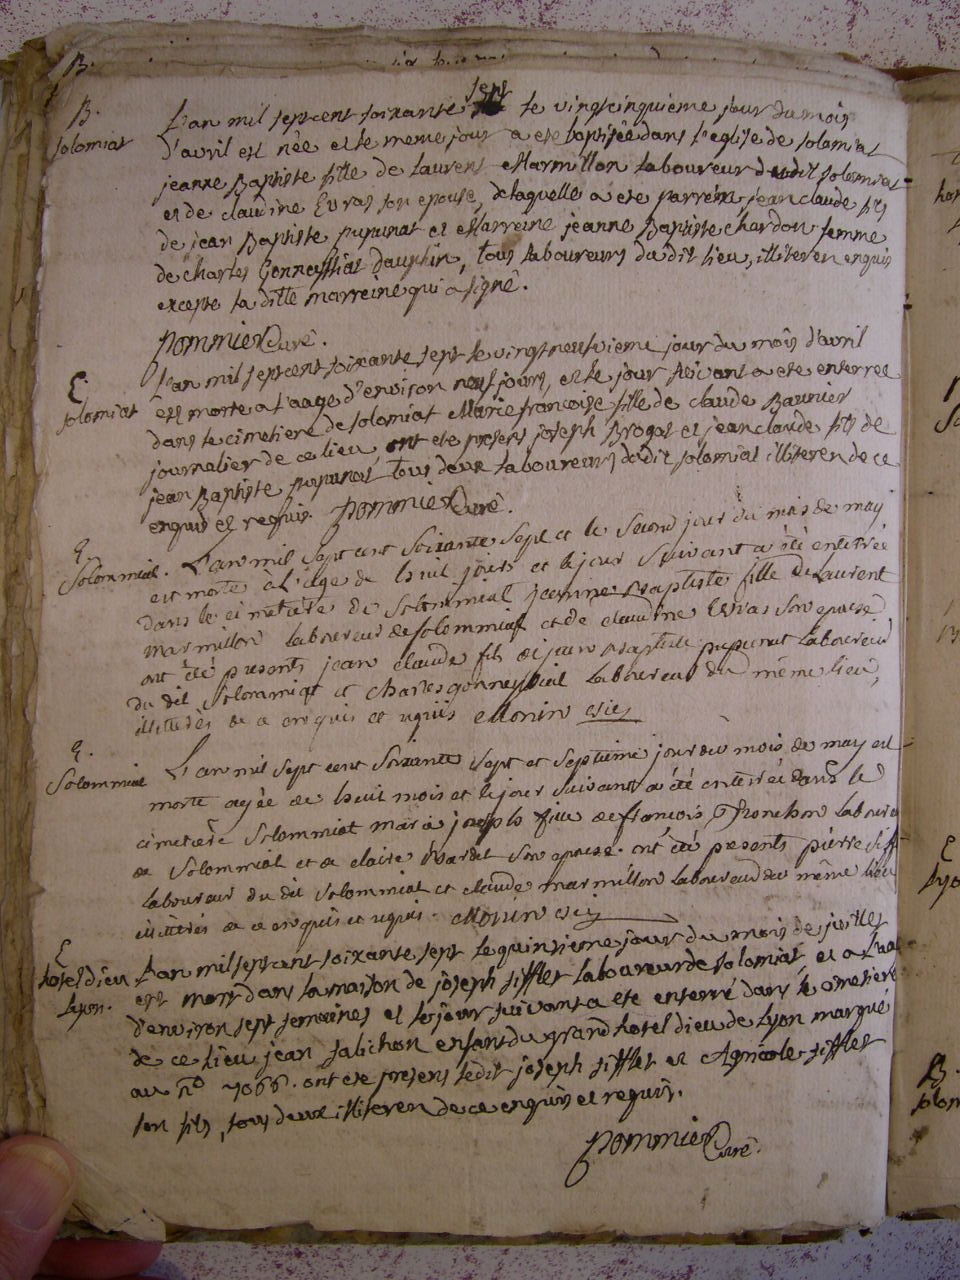 B.
B.
solomiat
L'an mil sept cent soixante sept le vingt cinquieme jour du mois
d'avril est née et le meme jour a ete baptisée dans l'eglise de solomiat
jeanne Baptiste fille de laurent Marmillon laboureur dudit solomiat
et de claudine Evras son epouse, de laquelle a ete parrein jean claude fils
de jean Baptiste pupunat et Marreine jeanne Baptiste chardon femme
de charles Gonnessiat Dauphin, tous laboureurs du dit lieu, illiteren enquis
excepte la ditte marreine qui a signé.
pommier Curé.
E.
solomiat
L'an mil sept cent soixante sept le vingt neufvieme jour du mois d'avril
est morte a l'aage d'environ neuf jours, et le jour suivant a ete enterree
dans le cimetiere de solomiat Marie francoise fille de claude Baunier
journalier de ce lieu, ont ete presens joseph Brogat et jean claude fils de
jean Baptiste pupunat tous deux laboureurs dudit solomiat illiteren de ce
enquis et requis. pommier Curé.
E.
Solommiat.
L'an mil sept cent soixante sept et le second jour du mois de may
est morte à l'âge de huit jours et le jour suivant a été enterrée
dans le cimetiere de Solommiat jeanne Baptiste fille de laurent
marmillon laboureur de Solommiat et de claudine Evras son epouse
ont été presents jean claude fils de jean baptiste pupunat laboureur
du dit Solommiat et charles gonnessiat laboureur du même lieu,
illitterés de ce enquis et requis Monin vic
E.
Solommiat
L'an mil sept cent soixante sept et septieme jour du mois de may est
morte agée de huit mois et le jour suivant a été enterrée dans le
cimetiere Solommiat maria josephs fille de françois Tronchon laboureur
de Solommiat et de claire son epouse. ont été presents pierre siff
laboureur du dit Solommiat et claude marmillon laboureur du même lieu
illitterés de ce enquis et requis. Monin vic
E
hotel dieu
Lyon.
L'an mil sept cent soixante sept le quinsieme jour du mois de juillet
est mort dans la maison de joseph siffler laboureur de solomiat, et a l'aage
d'environ sept semaines et le jour suivant a ete enterré dans le cimetiere
de ce lieu jean salichon enfant du grand hotel dieu de Lyon marqué
au n° 7066. ont ete presens ledit joseph siffler et Agricole siffler
son fils, tous deux illiteren de ce enquis et requis.
pommier Curé.